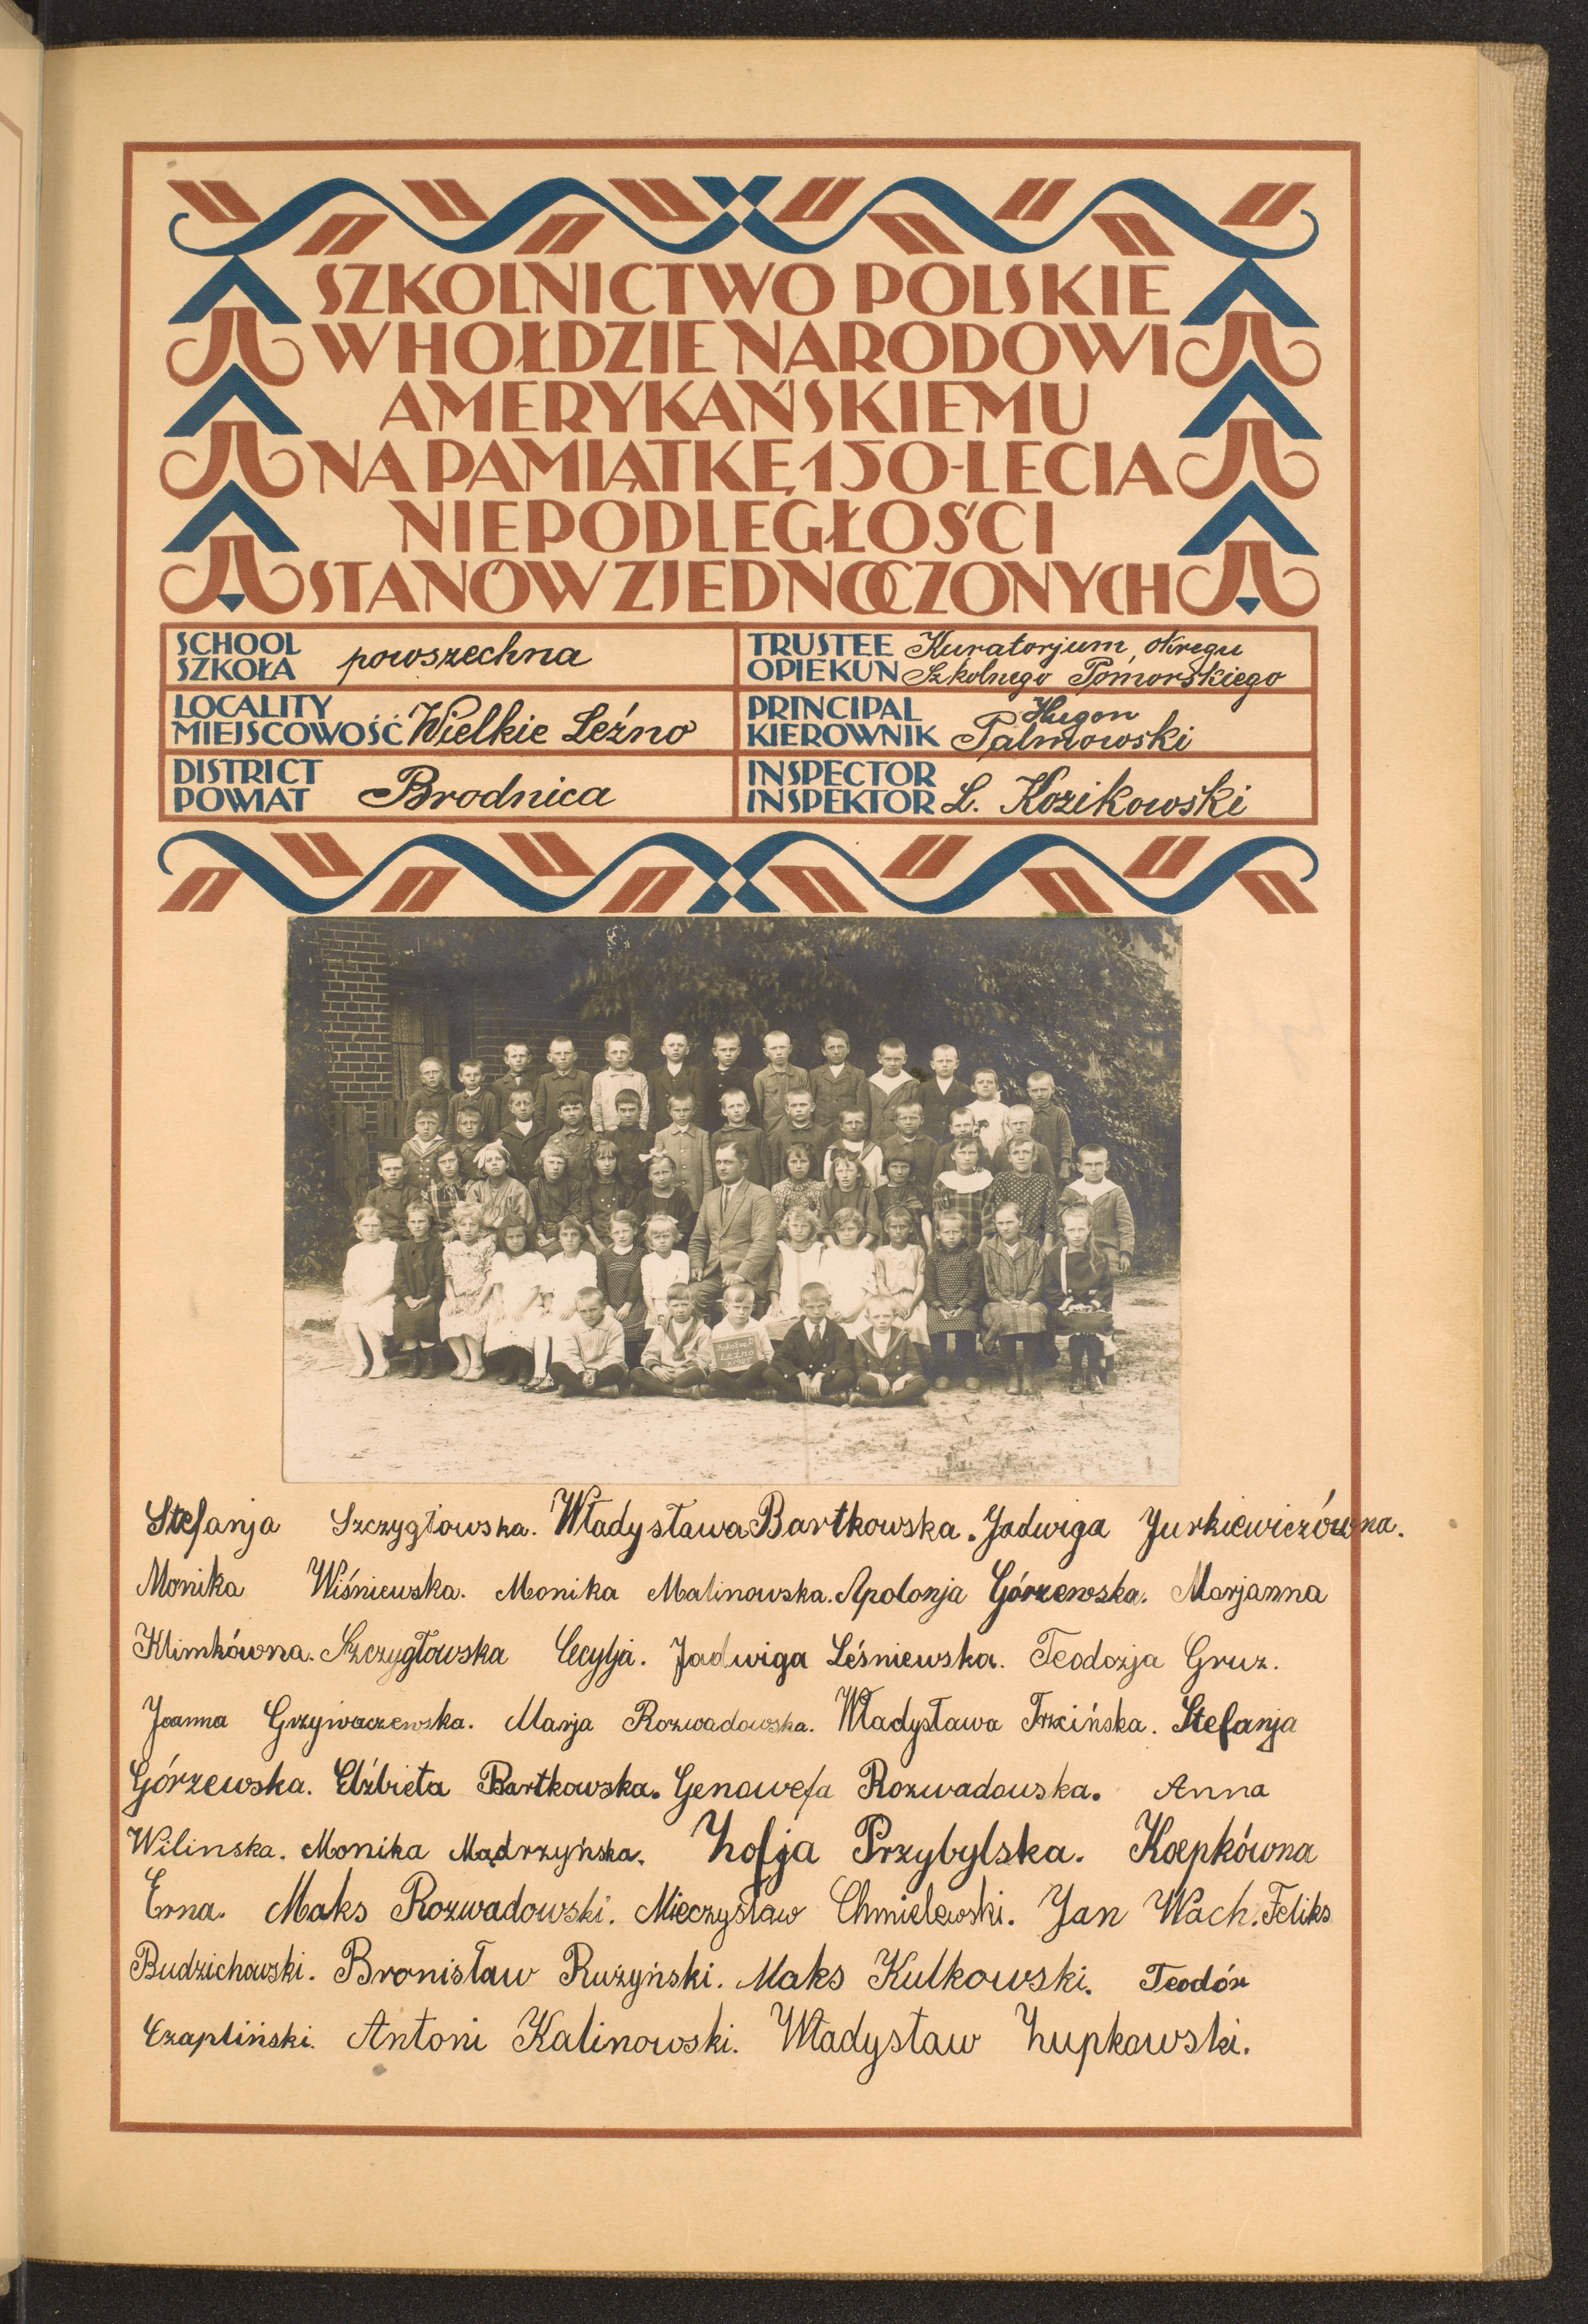 SZKOLNICTWO POLSKIE
W HOŁDZIE NARODOWI
AMERYKAŃSKIEMU
NA PAMIĄTKĘ 150-LECIA
NIEPODLEGŁOŚCI
STANÓW ZJEDNOCZONYCH
SCHOOL
SZKOŁA powszechna
TRUSTEE Kuratorjum okręgu
OPIEKUN Szkolnego Pomorskiego
LOCALITY
MIEJSCOWOŚĆ Wielkie Leźno
PRINCIPAL Hugon
KIEROWNIK Palmowski
DISTRICT
POWIAT Brodnica
INSPECTOR
INSPEKTOR L. Kozikowski
Leźno
Stefanja Szczygłowska. Władysława Bartkowska. Jadwiga Jurkiewiczówna.
Monika Wiśniewska. Monika Malinowska. Apolonja Górzewska. Marjanna
Klimkówna. Szczygłowska Cecylja. Jadwiga Leśniewska. Teodozja Gruz.
Joanna Grzywaczewska. Marja Rozwadowska. Władysława Trzcińska. Stefanja
Górzewska. Elżbieta Bartkowska. Genowefa Rozwadowska. Anna
Wilinska. Monika Mądrzyńska. Zofja Przybylska. Koepkówna
Erna. Maks Rozwadowski. Mieczysław Chmielewski. Jan Wach. Feliks
Budzichowski. Bronisław Rużyński. Maks Kulkowski. Teodór
Czapliński. Antoni Kalinowski. Władysław Zupkowski.